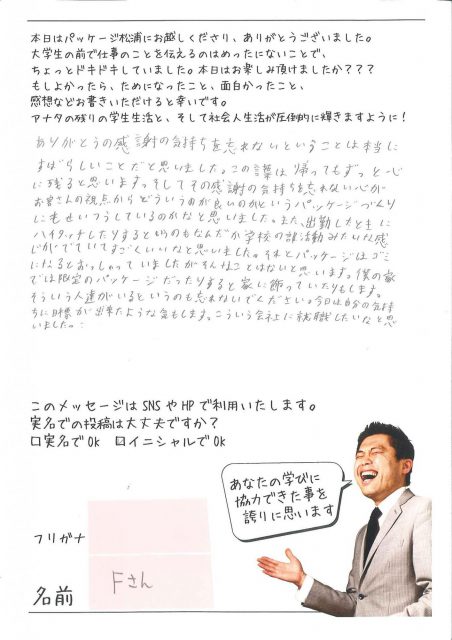 本日はパッケージ松浦にお越しくださり、ありがとうございました。
大学生の前で仕事のことを伝えるのはめったにないことで、
ちょっとドキドキしていました。本日はお楽しみ頂けましたか???
もしよかったら、ためになったこと、面白かったこと、
感想などお書きいただけると幸いです。
アナタの残りの学生生活と、そして社会人生活が圧倒的に輝きますように!
ありがとうの感謝の気持ちを忘れないということは本当に
すばらしいことだと思いました。この言葉は帰ってもずっと心
に残ると思います。そしてその感謝の気持ちを忘れない心が
お客さんの視点からどういうのが良いのかというパッケージづくり
にも せいつうしているのかなと思いました。また、出勤したときに
ハイタッチしたりするというのもなんだか学校の部活動みたいな感
じがでていてすごくいいなと思いました。それとパッケージはゴミ
になるとおっしゃっていましたがそんなことはないと思います。僕の家
では限定のパッケージだったりすると家に飾っていたりもします。
そういう人達がいるというのも忘れないでください。今日は自分の気持
ちに目標が出来たような気もします。こういう会社に就職したいなと思
いました。
このメッセージはSNSやHPで利用いたします。
実名での投稿は大丈夫ですか?
□実名でOk ☑イニシャルでOk
あなたの学びに
協力できた事を
誇りに思います
フリガナ
名前 Fさん